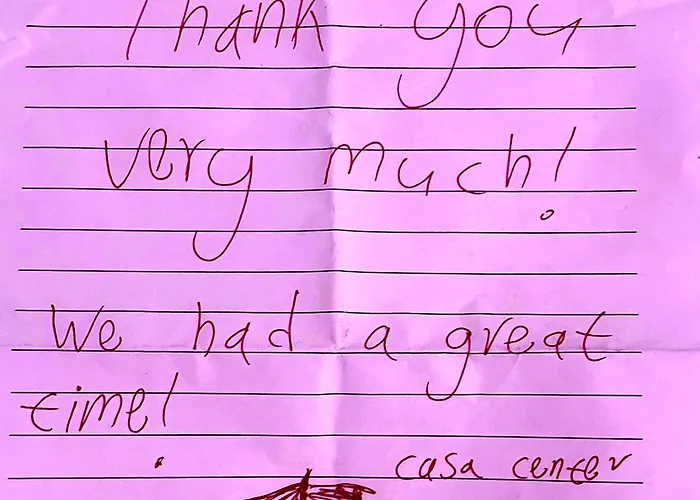 Thank you
very much!
We had a great
time!
casa center